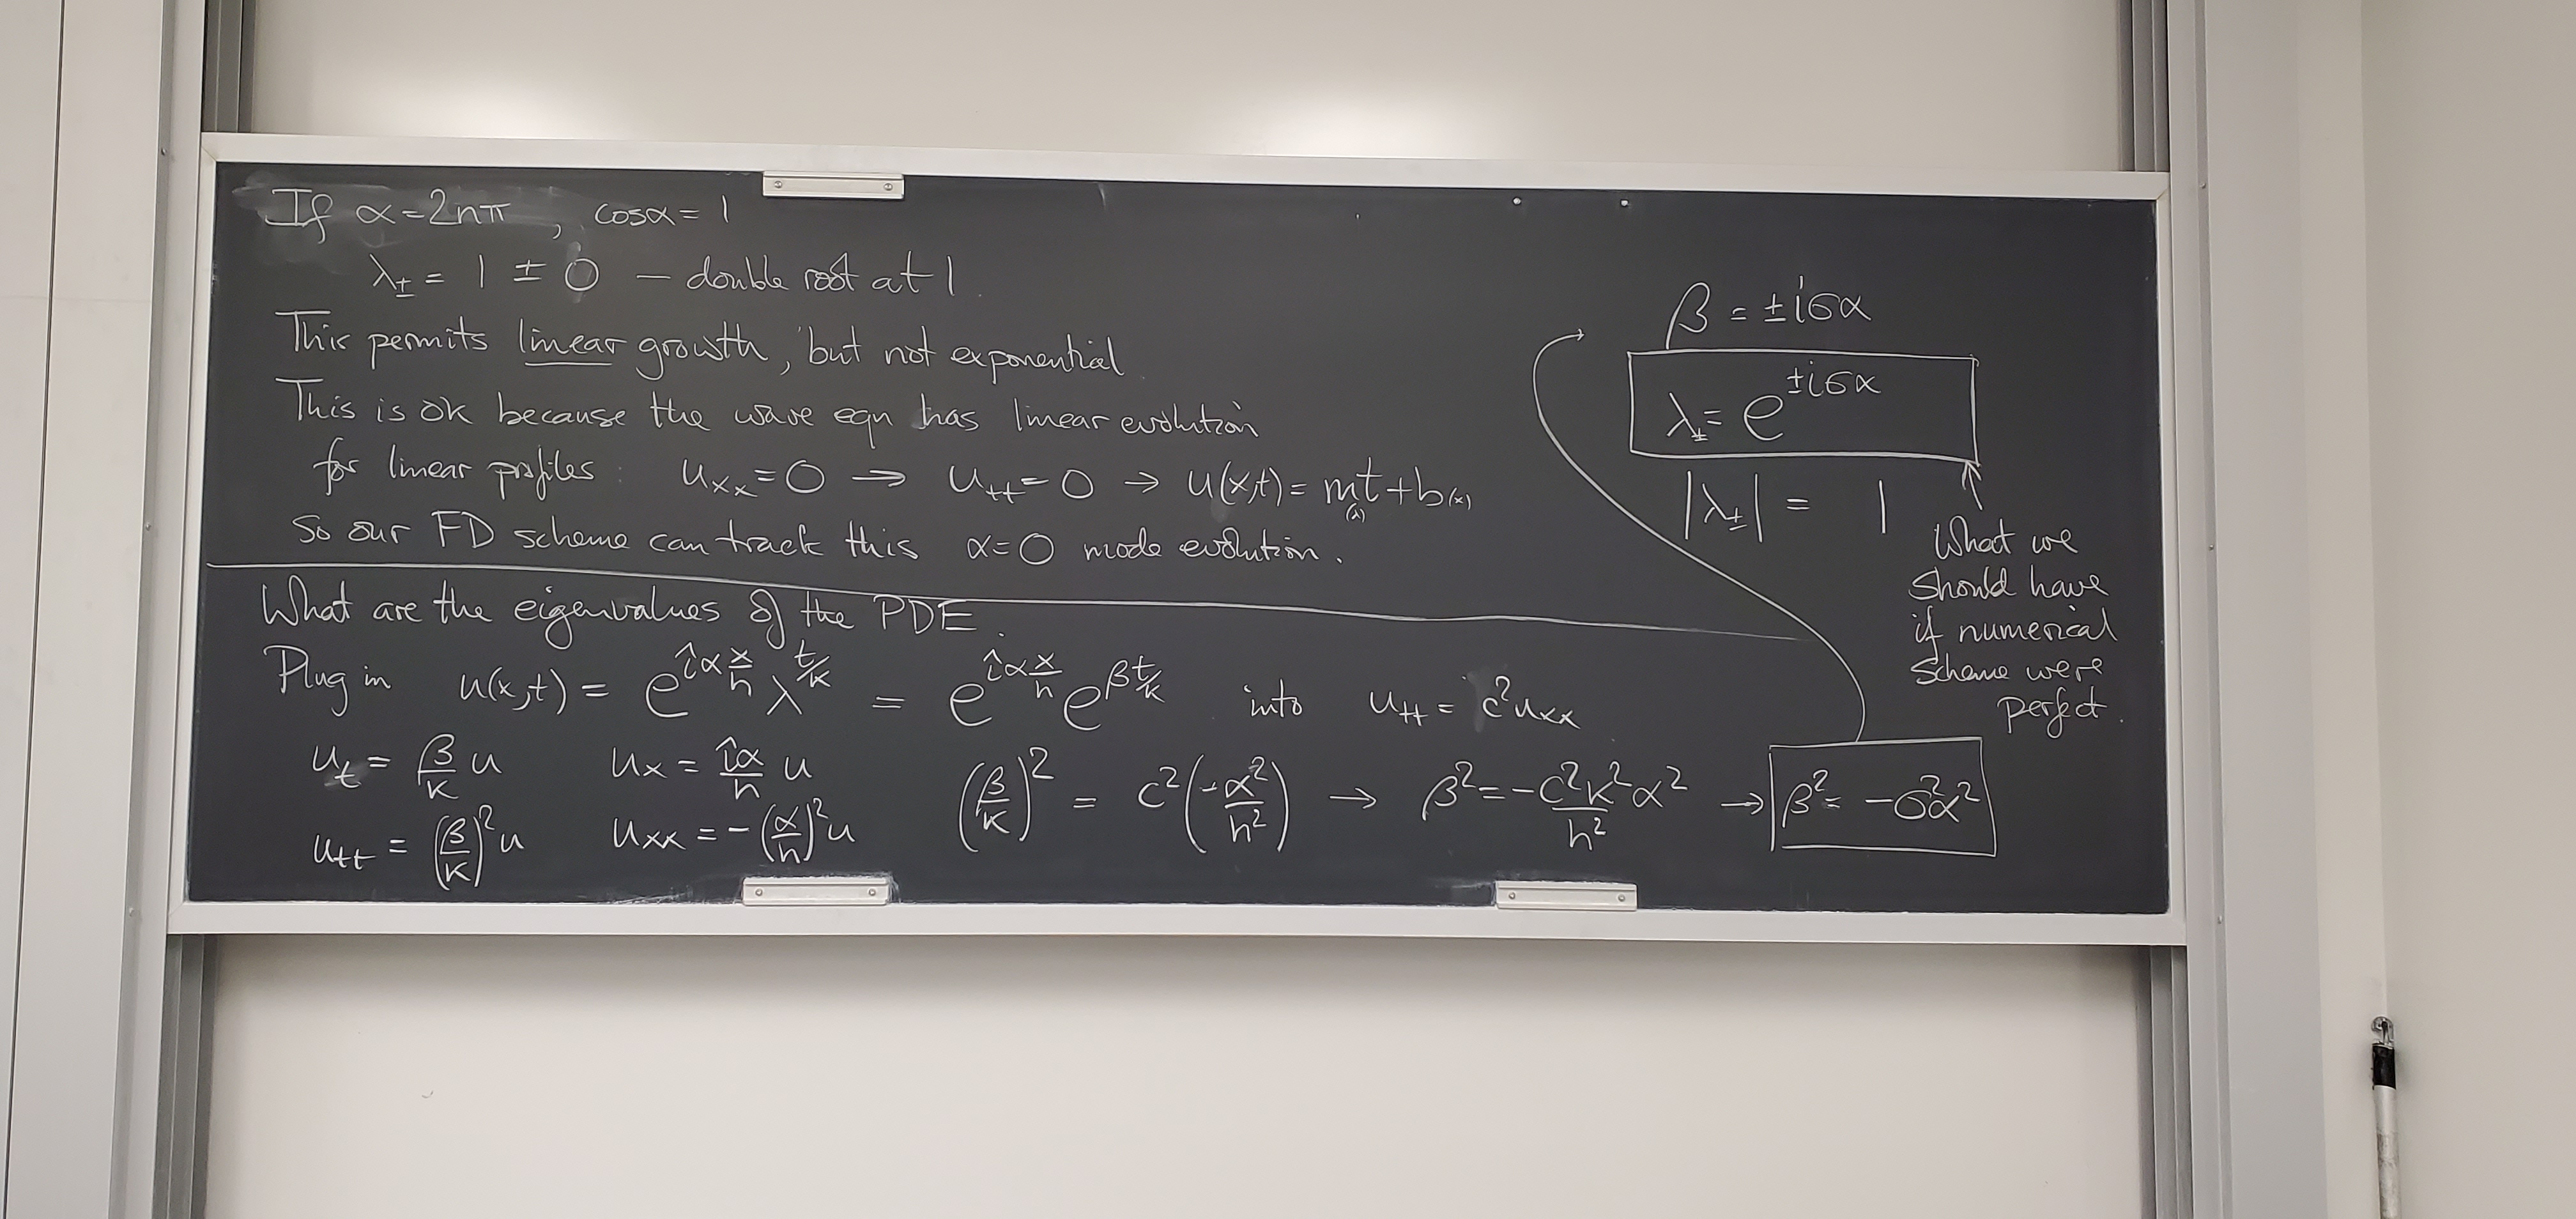 If α=2nπ, cosα=1
λ± = 1 ± 0 — double root at 1.
This permits linear growth, but not exponential
This is ok because the wave eqn has linear evolution
for linear profiles: u_xx=0 → u_tt=0 → u(x,t)= m(x)t+b(x)
So our FD scheme can track this α=0 mode evolution.
What are the eigenvalues of the PDE.
Plug in u(x,t) = e^{iα x/h} λ^{t/k} = e^{iα x/h} e^{β t/k} into u_tt = c²u_xx
u_t = β/k u u_x = iα/h u
u_tt = (β/k)² u u_xx = -(α/h)² u
(β/k)² = c²(-α²/h²) → β² = -c²k²/h² α² → β² = -σ²α²
β = ±iσα
λ± = e^{±iσα}
|λ±| = 1
What we
should have
if numerical
scheme were
perfect.